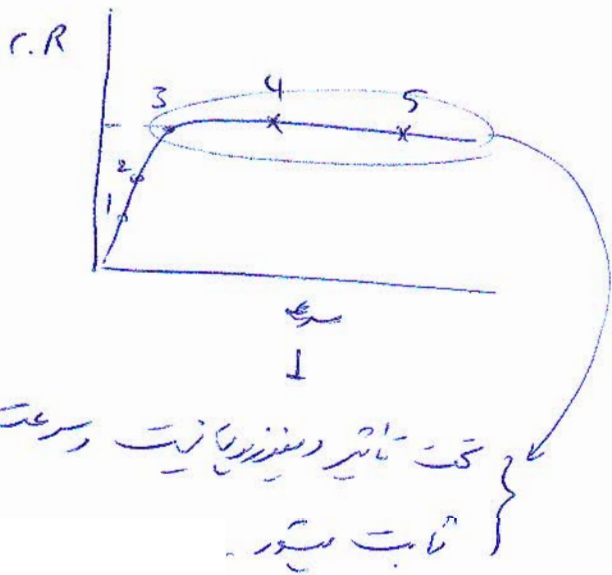 C.R
3
4
5
2
1
سرعت
تحت تاثیر دیفوزیون نیست و سرعت
ثابت میشود.